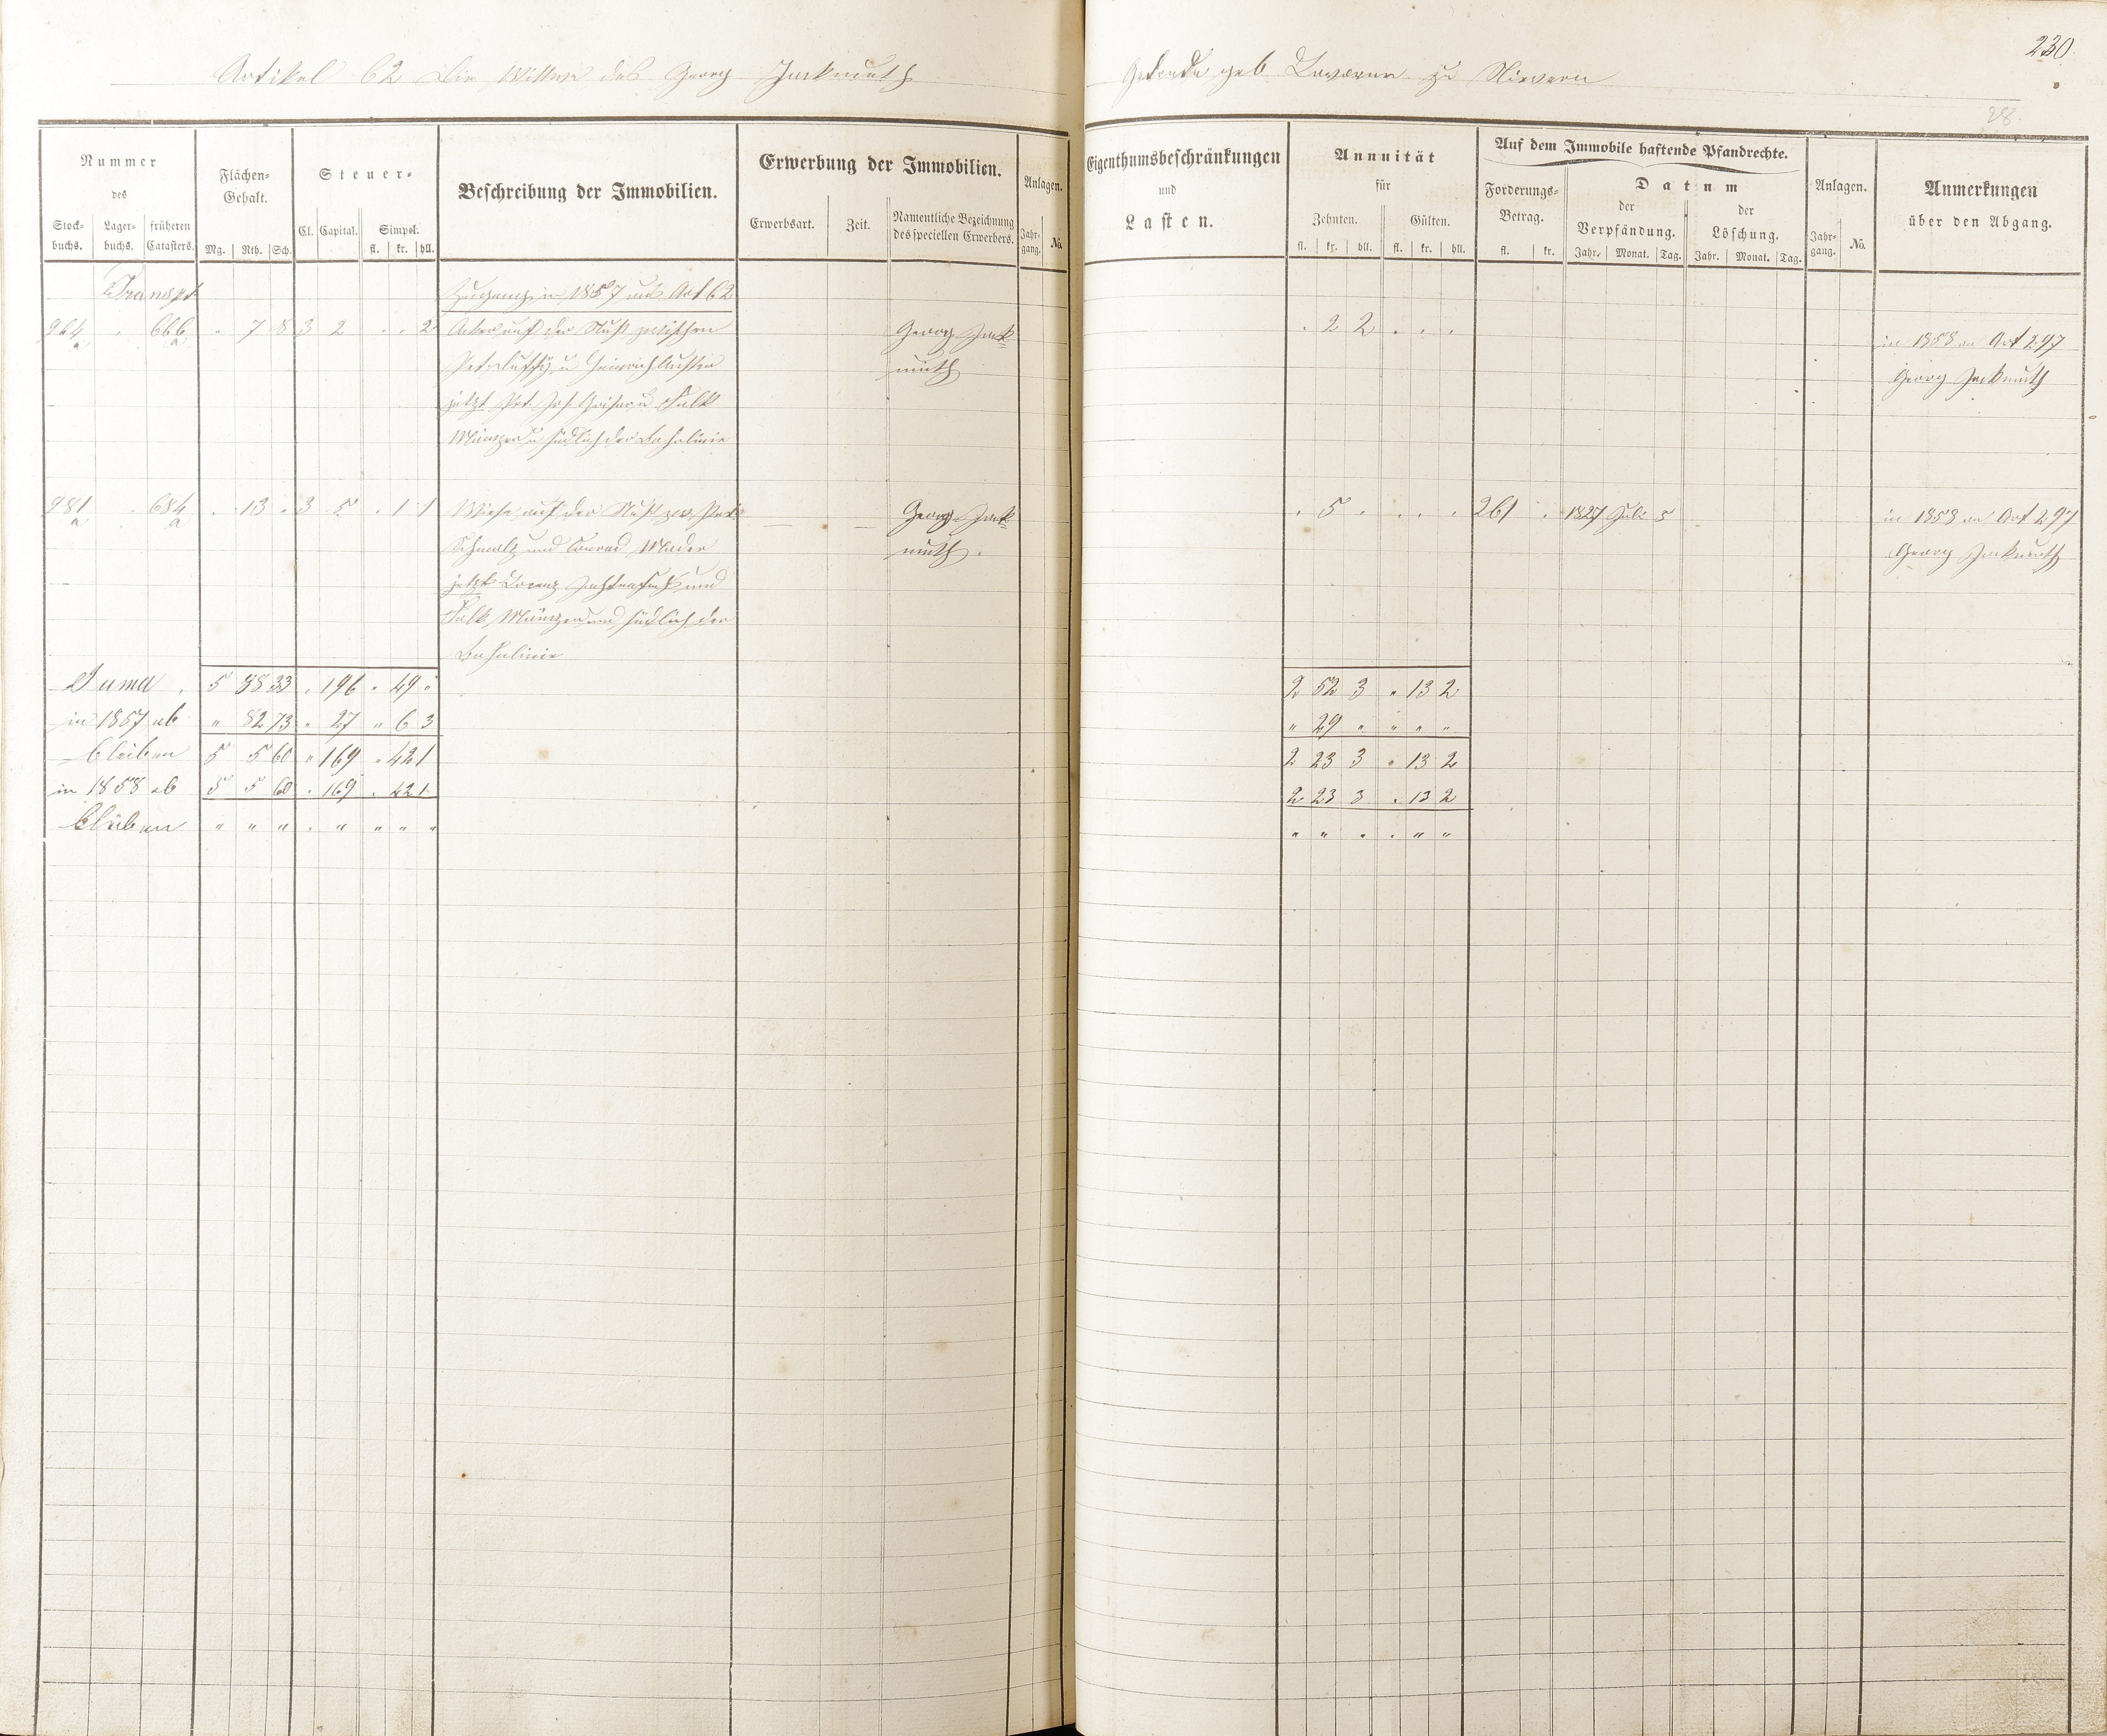 230.
Artikel 62 Die Wittwe des Georg Jackmuth Gertrude geb. zu Nievern
28.
Nummer
des
Stock-
buchs.
Lager-
buchs.
früheren
Catasters.
Flächen-
Gehalt.
Mg. Rth. Sch.
Steuer-
Cl. Capital. Simpel.
fl. kr. hll.
Beschreibung der Immobilien.
Erwerbung der Immobilien.
Erwerbsart. Zeit. Namentliche Bezeichnung
des speciellen Erwerbers.
Anlagen.
Jahr-
gang. No.
Eigenthumsbeschränkungen
und
Lasten.
Annuität
für
Zehnten. Gülten.
fl. kr. hll. fl. kr. hll.
Auf dem Immobile haftende Pfandrechte.
Forderungs-
Betrag.
fl. kr.
Datum
der
Verpfändung.
Jahr. Monat. Tag.
der
Löschung.
Jahr. Monat. Tag.
Anlagen.
Jahr-
gang. No.
Anmerkungen
über den Abgang.
Transpt
Zugang in 1857 aus Art 62
964 a . 666 a . 7 8 3 2 . . 2 Acker auf der zwischen Georg Jack- . 2 2 . . . in 1858 an Art 297
u Heinrich muth Georg Jackmuth
jetzt Pet. Jos. u Falk
u südlich der Bahnlinie
981 a . 684 a . 13 . 3 5 . 1 1 Wiese auf der zw. Pet. Georg Jack- . 5 . . . . 261 . 1827 Juli 5 in 1858 an Art 297
Schmalz und Conrad Mader muth. Georg Jackmuth
jetzt Lorenz und
Falk und südlich der
Bahnlinie
Suma . 5 88 33 . 196 . 49 " 2 52 3 " 13 2
in 1857 ab " 82 73 " 27 " 6 3 " 29 " " " "
bleiben 5 5 60 " 169 " 42 1 2 23 3 " 13 2
in 1858 ab 5 5 60 . 169 . 42 1 2 23 3 . 13 2
bleiben " " " . " " " " " " . . " "